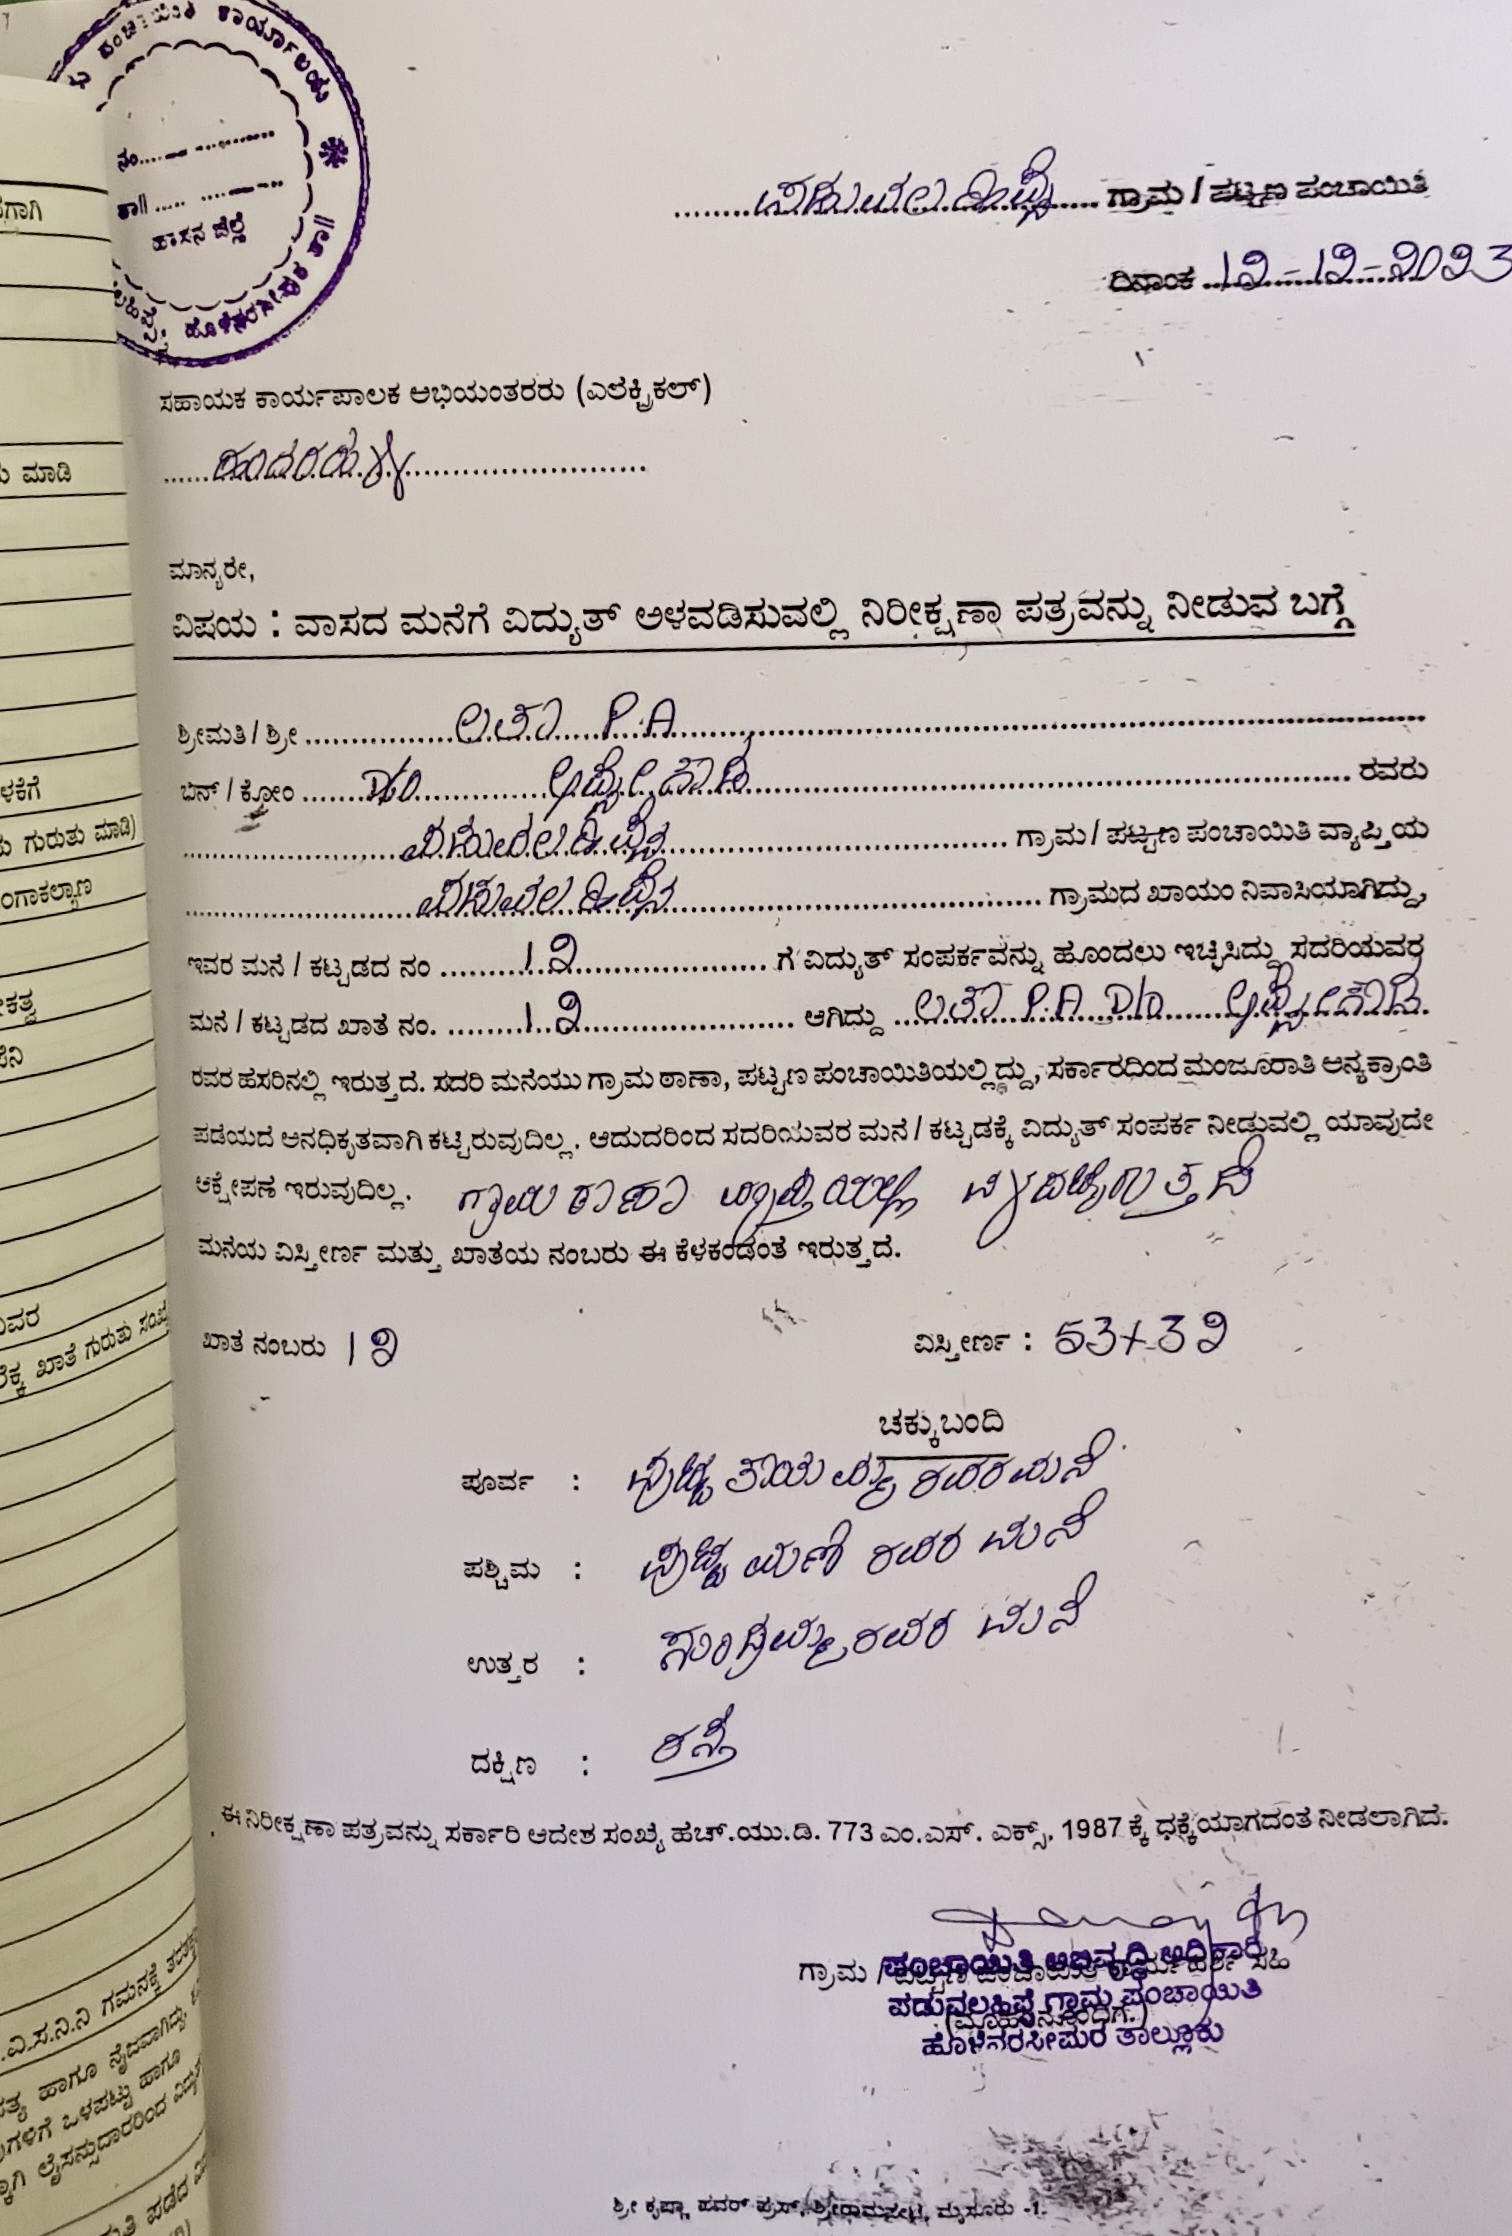 ಪಂಚಾಯಿತಿ ಕಾರ್ಯಾಲಯ
ನಂ.
ತಾ||
ಹಾಸನ ಜಿಲ್ಲೆ
ಹೊಳೆನರಸೀಪುರ ತಾ||
ಪಡುವಲಹಿಪ್ಪೆ ಗ್ರಾಮ / ಪಟ್ಟಣ ಪಂಚಾಯಿತಿ
ದಿನಾಂಕ 12-12-2023
ಸಹಾಯಕ ಕಾರ್ಯಪಾಲಕ ಅಭಿಯಂತರರು (ಎಲೆಕ್ಟ್ರಿಕಲ್)
ಮಾನ್ಯರೇ,
ವಿಷಯ : ವಾಸದ ಮನೆಗೆ ವಿದ್ಯುತ್ ಅಳವಡಿಸುವಲ್ಲಿ ನಿರೀಕ್ಷಣಾ ಪತ್ರವನ್ನು ನೀಡುವ ಬಗ್ಗೆ
ಶ್ರೀಮತಿ / ಶ್ರೀ ಲತಾ P.A
ಬಿನ್ / ಕ್ರೋಂ D/o ರವರು
ಪಡುವಲಹಿಪ್ಪೆ ಗ್ರಾಮ / ಪಟ್ಟಣ ಪಂಚಾಯಿತಿ ವ್ಯಾಪ್ತಿಯ
ಪಡುವಲಹಿಪ್ಪೆ ಗ್ರಾಮದ ಖಾಯಂ ನಿವಾಸಿಯಾಗಿದ್ದು,
ಇವರ ಮನೆ / ಕಟ್ಟಡದ ನಂ 12 ಗೆ ವಿದ್ಯುತ್ ಸಂಪರ್ಕವನ್ನು ಹೊಂದಲು ಇಚ್ಛಿಸಿದ್ದು ಸದರಿಯವರ
ಮನೆ / ಕಟ್ಟಡದ ಖಾತೆ ನಂ. 12 ಆಗಿದ್ದು ಲತಾ P.A D/o
ರವರ ಹೆಸರಿನಲ್ಲಿ ಇರುತ್ತದೆ. ಸದರಿ ಮನೆಯು ಗ್ರಾಮ ಠಾಣಾ, ಪಟ್ಟಣ ಪಂಚಾಯಿತಿಯಲ್ಲಿದ್ದು, ಸರ್ಕಾರದಿಂದ ಮಂಜೂರಾತಿ ಅನ್ಯಕ್ರಾಂತಿ
ಪಡೆಯದೆ ಅನಧಿಕೃತವಾಗಿ ಕಟ್ಟಿರುವುದಿಲ್ಲ. ಆದುದರಿಂದ ಸದರಿಯವರ ಮನೆ / ಕಟ್ಟಡಕ್ಕೆ ವಿದ್ಯುತ್ ಸಂಪರ್ಕ ನೀಡುವಲ್ಲಿ ಯಾವುದೇ
ಆಕ್ಷೇಪಣೆ ಇರುವುದಿಲ್ಲ. ಗ್ರಾಮ ಠಾಣಾ ವ್ಯಾಪ್ತಿಯಲ್ಲಿ
ಮನೆಯ ವಿಸ್ತೀರ್ಣ ಮತ್ತು ಖಾತೆಯ ನಂಬರು ಈ ಕೆಳಕಂಡಂತೆ ಇರುತ್ತದೆ.
ಖಾತೆ ನಂಬರು 12 ವಿಸ್ತೀರ್ಣ : 53+32
ಚಕ್ಕುಬಂದಿ
ಪೂರ್ವ : ಪುಟ್ಟತಾಯಮ್ಮ ರವರ ಮನೆ
ಪಶ್ಚಿಮ : ಪುಟ್ಟಮಣಿ ರವರ ಮನೆ
ಉತ್ತರ : ಸುಂದ್ರಮ್ಮ ರವರ ಮನೆ
ದಕ್ಷಿಣ : ರಸ್ತೆ
ಈ ನಿರೀಕ್ಷಣಾ ಪತ್ರವನ್ನು ಸರ್ಕಾರಿ ಆದೇಶ ಸಂಖ್ಯೆ ಹೆಚ್.ಯು.ಡಿ. 773 ಎಂ.ಎಸ್. ಎಕ್ಸ್. 1987 ಕ್ಕೆ ಧಕ್ಕೆಯಾಗದಂತೆ ನೀಡಲಾಗಿದೆ.
ಪಂಚಾಯಿತಿ ಅಭಿವೃದ್ಧಿ ಅಧಿಕಾರಿ
ಗ್ರಾಮ / ಪಟ್ಟಣ ಪಂಚಾಯಿತಿ ಕಾರ್ಯದರ್ಶಿ ಸಹಿ
ಪಡುವಲಹಿಪ್ಪೆ ಗ್ರಾಮ ಪಂಚಾಯಿತಿ
(ಮೊಹರಿನೊಂದಿಗೆ.)
ಹೊಳೆನರಸೀಪುರ ತಾಲ್ಲೂಕು
ಶ್ರೀ ಕೃಷ್ಣಾ ಪವರ್ ಪ್ರೆಸ್, ಶ್ರೀರಾಮಪೇಟೆ, ಮೈಸೂರು -1.
ಮಾಡಿ
ಗುರುತು ಮಾಡಿ)
ಖಾತೆ ಗುರುತು ಸಂಖ್ಯೆ
ವಿ.ಸ.ನಿ.ನಿ ಗಮನಕ್ಕೆ
ಹಾಗೂ ನೈಜವಾಗಿದ್ದು,
ಒಳಪಟ್ಟು ಹಾಗೂ
ಲೈಸನ್ಸುದಾರರಿಂದ
ಪಡೆದ